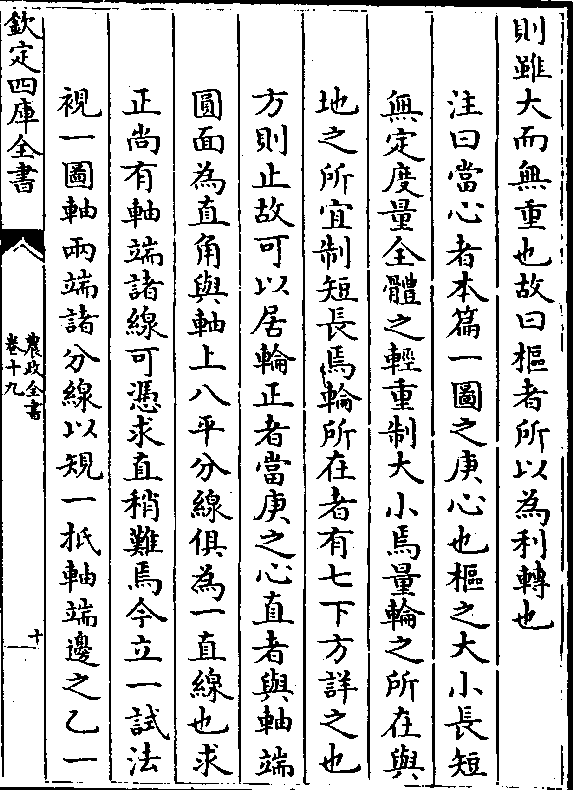 則雖大而無重也故曰樞者所以為利轉也
注曰當心者本篇一圖之庚心也樞之大小長短
無定度量全體之輕重制大小焉量輪之所在與
地之所宜制短長焉輪所在者有七下方詳之也
方則止故可以居輪正者當庚之心直者與軸端
圓面為直角與軸上八平分線俱為一直線也求
正尚有軸端諸線可憑求直稍難焉今立一試法
視一圖軸兩端諸分線以規一抵軸端邊之乙一
欽定四庫全書
農政全書
卷十九
十